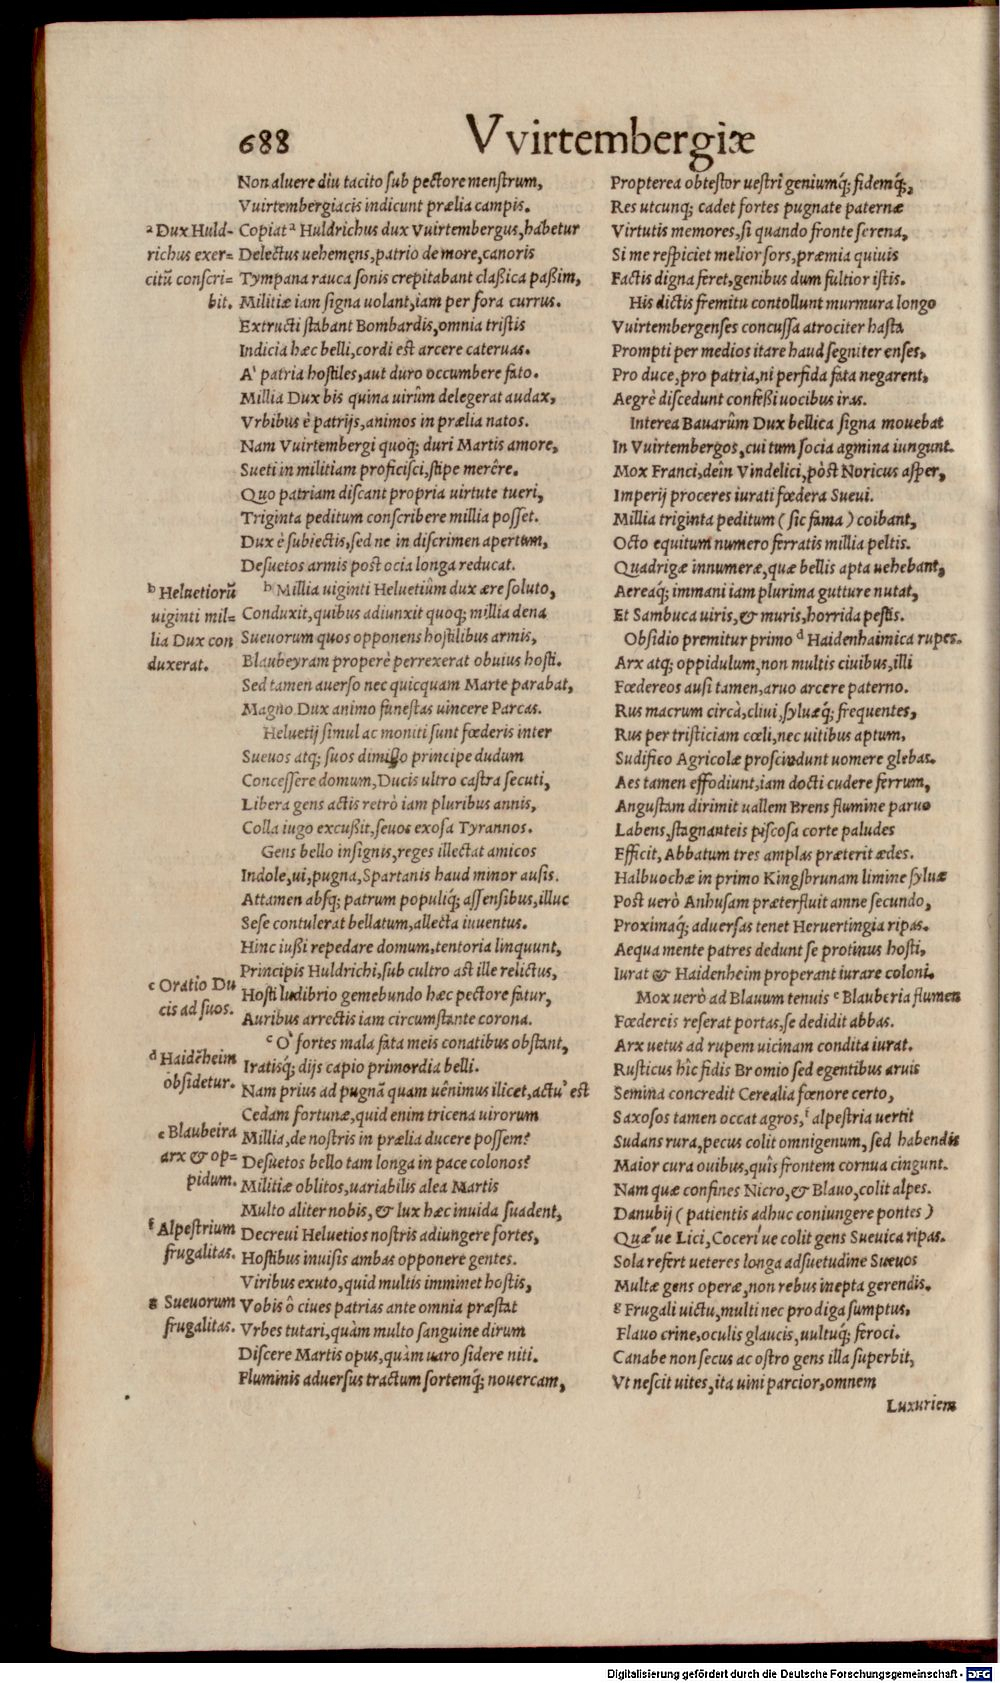 688
Vvirtembergiæ
Non aluere diu tacito sub pectore menstrum,
Vuirtembergiacis indicunt prælia campis.
Copiat ᵃ Huldrichus dux Vuirtembergus, habetur
Delectus uehemens, patrio de more, canoris
Tympana rauca sonis crepitabant claßica paßim,
Militiæ iam signa uolant, iam per fora currus.
Extructi stabant Bombardis, omnia tristis
Indicia hæc belli, cordi est arcere cateruas.
A' patria hostiles, aut duro occumbere fato.
Millia Dux bis quina uirûm delegerat audax,
Vrbibus è patrijs, animos in prælia natos.
Nam Vuirtembergi quoq; duri Martis amore,
Sueti in militiam proficisci, stipe merêre.
Quo patriam discant propria uirtute tueri,
Triginta peditum conscribere millia posset.
Dux è subiectis, sed ne in discrimen apertum,
Desuetos armis post ocia longa reducat.
ᵇ Millia uiginti Heluetiûm dux ære soluto,
Conduxit, quibus adiunxit quoq; millia dena
Sueuorum quos opponens hostilibus armis,
Blaubeyram properè perrexerat obuius hosti.
Sed tamen auerso nec quicquam Marte parabat,
Magno Dux animo funestas uincere Parcas.
Heluetij simul ac moniti sunt fœderis inter
Sueuos atq; suos dimisso principe dudum
Concessere domum, Ducis ultro castra secuti,
Libera gens actis retrò iam pluribus annis,
Colla iugo excußit, seuos exosa Tyrannos.
Gens bello insignis, reges illectat amicos
Indole, ui, pugna, Spartanis haud minor ausis.
Attamen absq; patrum populiq́; assensibus, illuc
Sese contulerat bellatum, allecta iuuentus.
Hinc iußi repedare domum, tentoria linquunt,
Principis Huldrichi, sub cultro ast ille relictus,
Hosti ludibrio gemebundo hæc pectore fatur,
Auribus arrectis iam circumstante corona.
ᶜ O' fortes mala fata meis conatibus obstant,
Iratisq́; dijs capio primordia belli.
Nam prius ad pugnā quam uênimus ilicet, actu' est
Cedam fortunæ, quid enim tricena uirorum
Millia, de nostris in prælia ducere possem?
Desuetos bello tam longa in pace colonos?
Militiæ oblitos, uariabilis alea Martis
Multo aliter nobis, & lux hæc inuida suadent,
Decreui Heluetios nostris adiungere fortes,
Hostibus inuisis ambas opponere gentes.
Viribus exuto, quid multis imminet hostis,
Vobis ô ciues patrias ante omnia præstat
Vrbes tutari, quàm multo sanguine dirum
Discere Martis opus, quàm uaro sidere niti.
Fluminis aduersus tractum sortemq́; nouercam,
ᵃ Dux Huld-
richus exer-
citū conscri-
bit.
ᵇ Heluetiorū
uiginti mil-
lia Dux con
duxerat.
ᶜ Oratio Du
cis ad suos.
ᵈ Haidēheim
obsidetur.
ᵉ Blaubeira
arx & op-
pidum.
ᶠ Alpestrium
frugalitas.
ᵍ Sueuorum
frugalitas.
Propterea obtestor uestri geniumq́; fidemq́;,
Res utcunq; cadet fortes pugnate paternæ
Virtutis memores, si quando fronte serena,
Si me respiciet melior sors, præmia quiuis
Factis digna feret, genibus dum fultior istis.
His dictis fremitu contollunt murmura longo
Vuirtembergenses concussa atrociter hasta
Prompti per medios itare haud segniter enses,
Pro duce, pro patria, ni perfida fata negarent,
Aegrè discedunt confeßi uocibus iras.
Interea Bauarûm Dux bellica signa mouebat
In Vuirtembergos, cui tum socia agmina iungunt.
Mox Franci, deîn Vindelici, pòst Noricus asper,
Imperij proceres iurati fœdera Sueui.
Millia triginta peditum ( sic fama ) coibant,
Octo equitum numero ferratis millia peltis.
Quadrigæ innumeræ, quæ bellis apta uehebant,
Aereaq́; immani iam plurima gutture nutat,
Et Sambuca uiris, & muris, horrida pestis.
Obsidio premitur primo ᵈ Haidenhaimica rupes.
Arx atq; oppidulum, non multis ciuibus, illi
Fœdereos ausi tamen, aruo arcere paterno.
Rus macrum circà, cliui, syluæq́; frequentes,
Rus per tristiciam cœli, nec uitibus aptum,
Sudifico Agricolæ proscindunt uomere glebas.
Aes tamen effodiunt, iam docti cudere ferrum,
Angustam dirimit uallem Brens flumine paruo
Labens, stagnanteis piscosa corte paludes
Efficit, Abbatum tres amplas præterit ædes.
Halbuochæ in primo Kingsbrunam limine syluæ
Post uerò Anhusam præterfluit amne secundo,
Proximaq́; aduersas tenet Heruertingia ripas.
Aequa mente patres dedunt se protinus hosti,
Iurat & Haidenheim properant iurare coloni.
Mox uerò ad Blauum tenuis ᵉ Blauberia flumen
Fœdereis reserat portas, se dedidit abbas.
Arx uetus ad rupem uicinam condita iurat.
Rusticus hîc fidis Bromio sed egentibus aruis
Semina concredit Cerealia fœnore certo,
Saxosos tamen occat agros, ᶠ alpestria uertit
Sudans rura, pecus colit omnigenum, sed habendis
Maior cura ouibus, quîs frontem cornua cingunt.
Nam quæ confines Nicro, & Blauo, colit alpes.
Danubij ( patientis adhuc coniungere pontes )
Quæ' ue Lici, Coceri' ue colit gens Sueuica ripas.
Sola refert ueteres longa adsuetudine Sueuos
Multæ gens operæ, non rebus inepta gerendis.
ᵍ Frugali uictu, multi nec prodiga sumptus,
Flauo crine, oculis glaucis, uultuq́; feroci.
Canabe non secus ac ostro gens illa superbit,
Vt nescit uites, ita uini parcior, omnem
Luxuriem
Digitalisierung gefördert durch die Deutsche Forschungsgemeinschaft - DFG